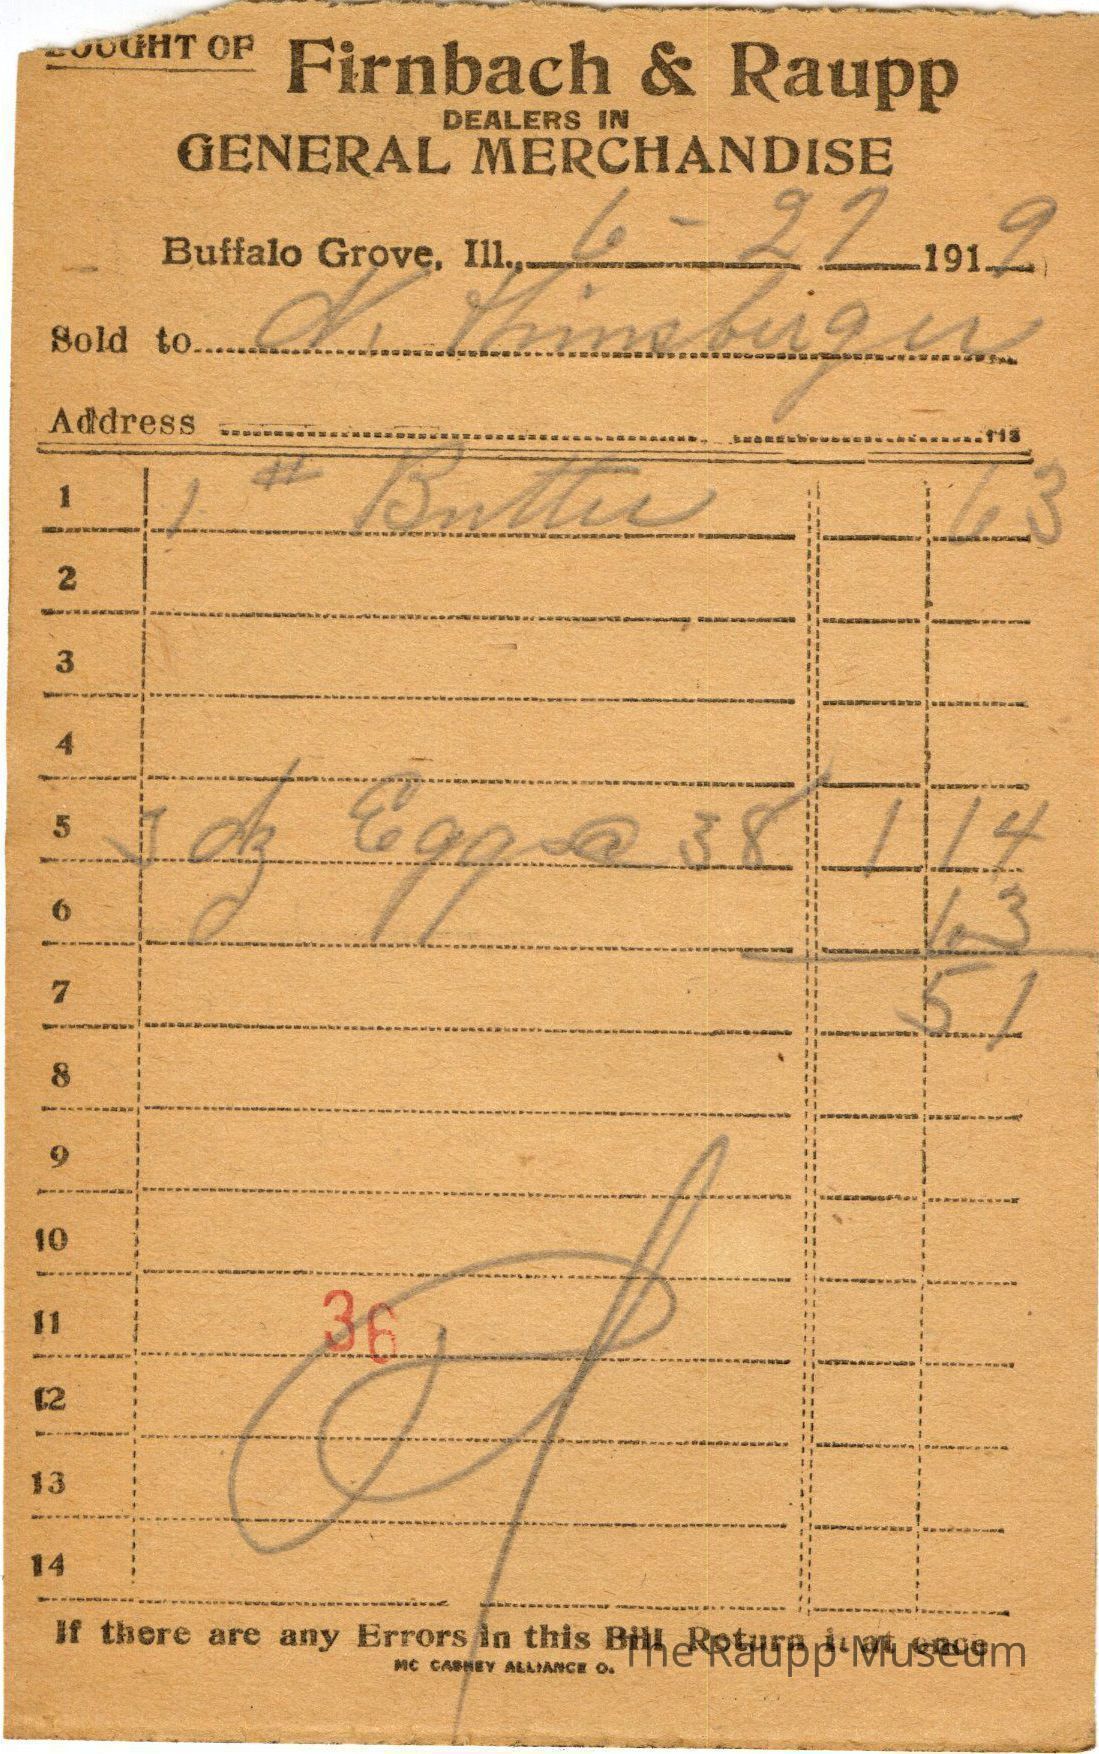 BOUGHT OF Firnbach & Raupp
DEALERS IN
GENERAL MERCHANDISE
Buffalo Grove, Ill., 6-27 1919
Sold to
Address 113
1 1 # Butter 63
2
3
4
5 3 dz Eggs @ 38 1 14
6 63
7 51
8
9
10
11 36
12
13
14
If there are any Errors in this Bill Return it at once
MC CASKEY ALLIANCE O.
The Raupp Museum